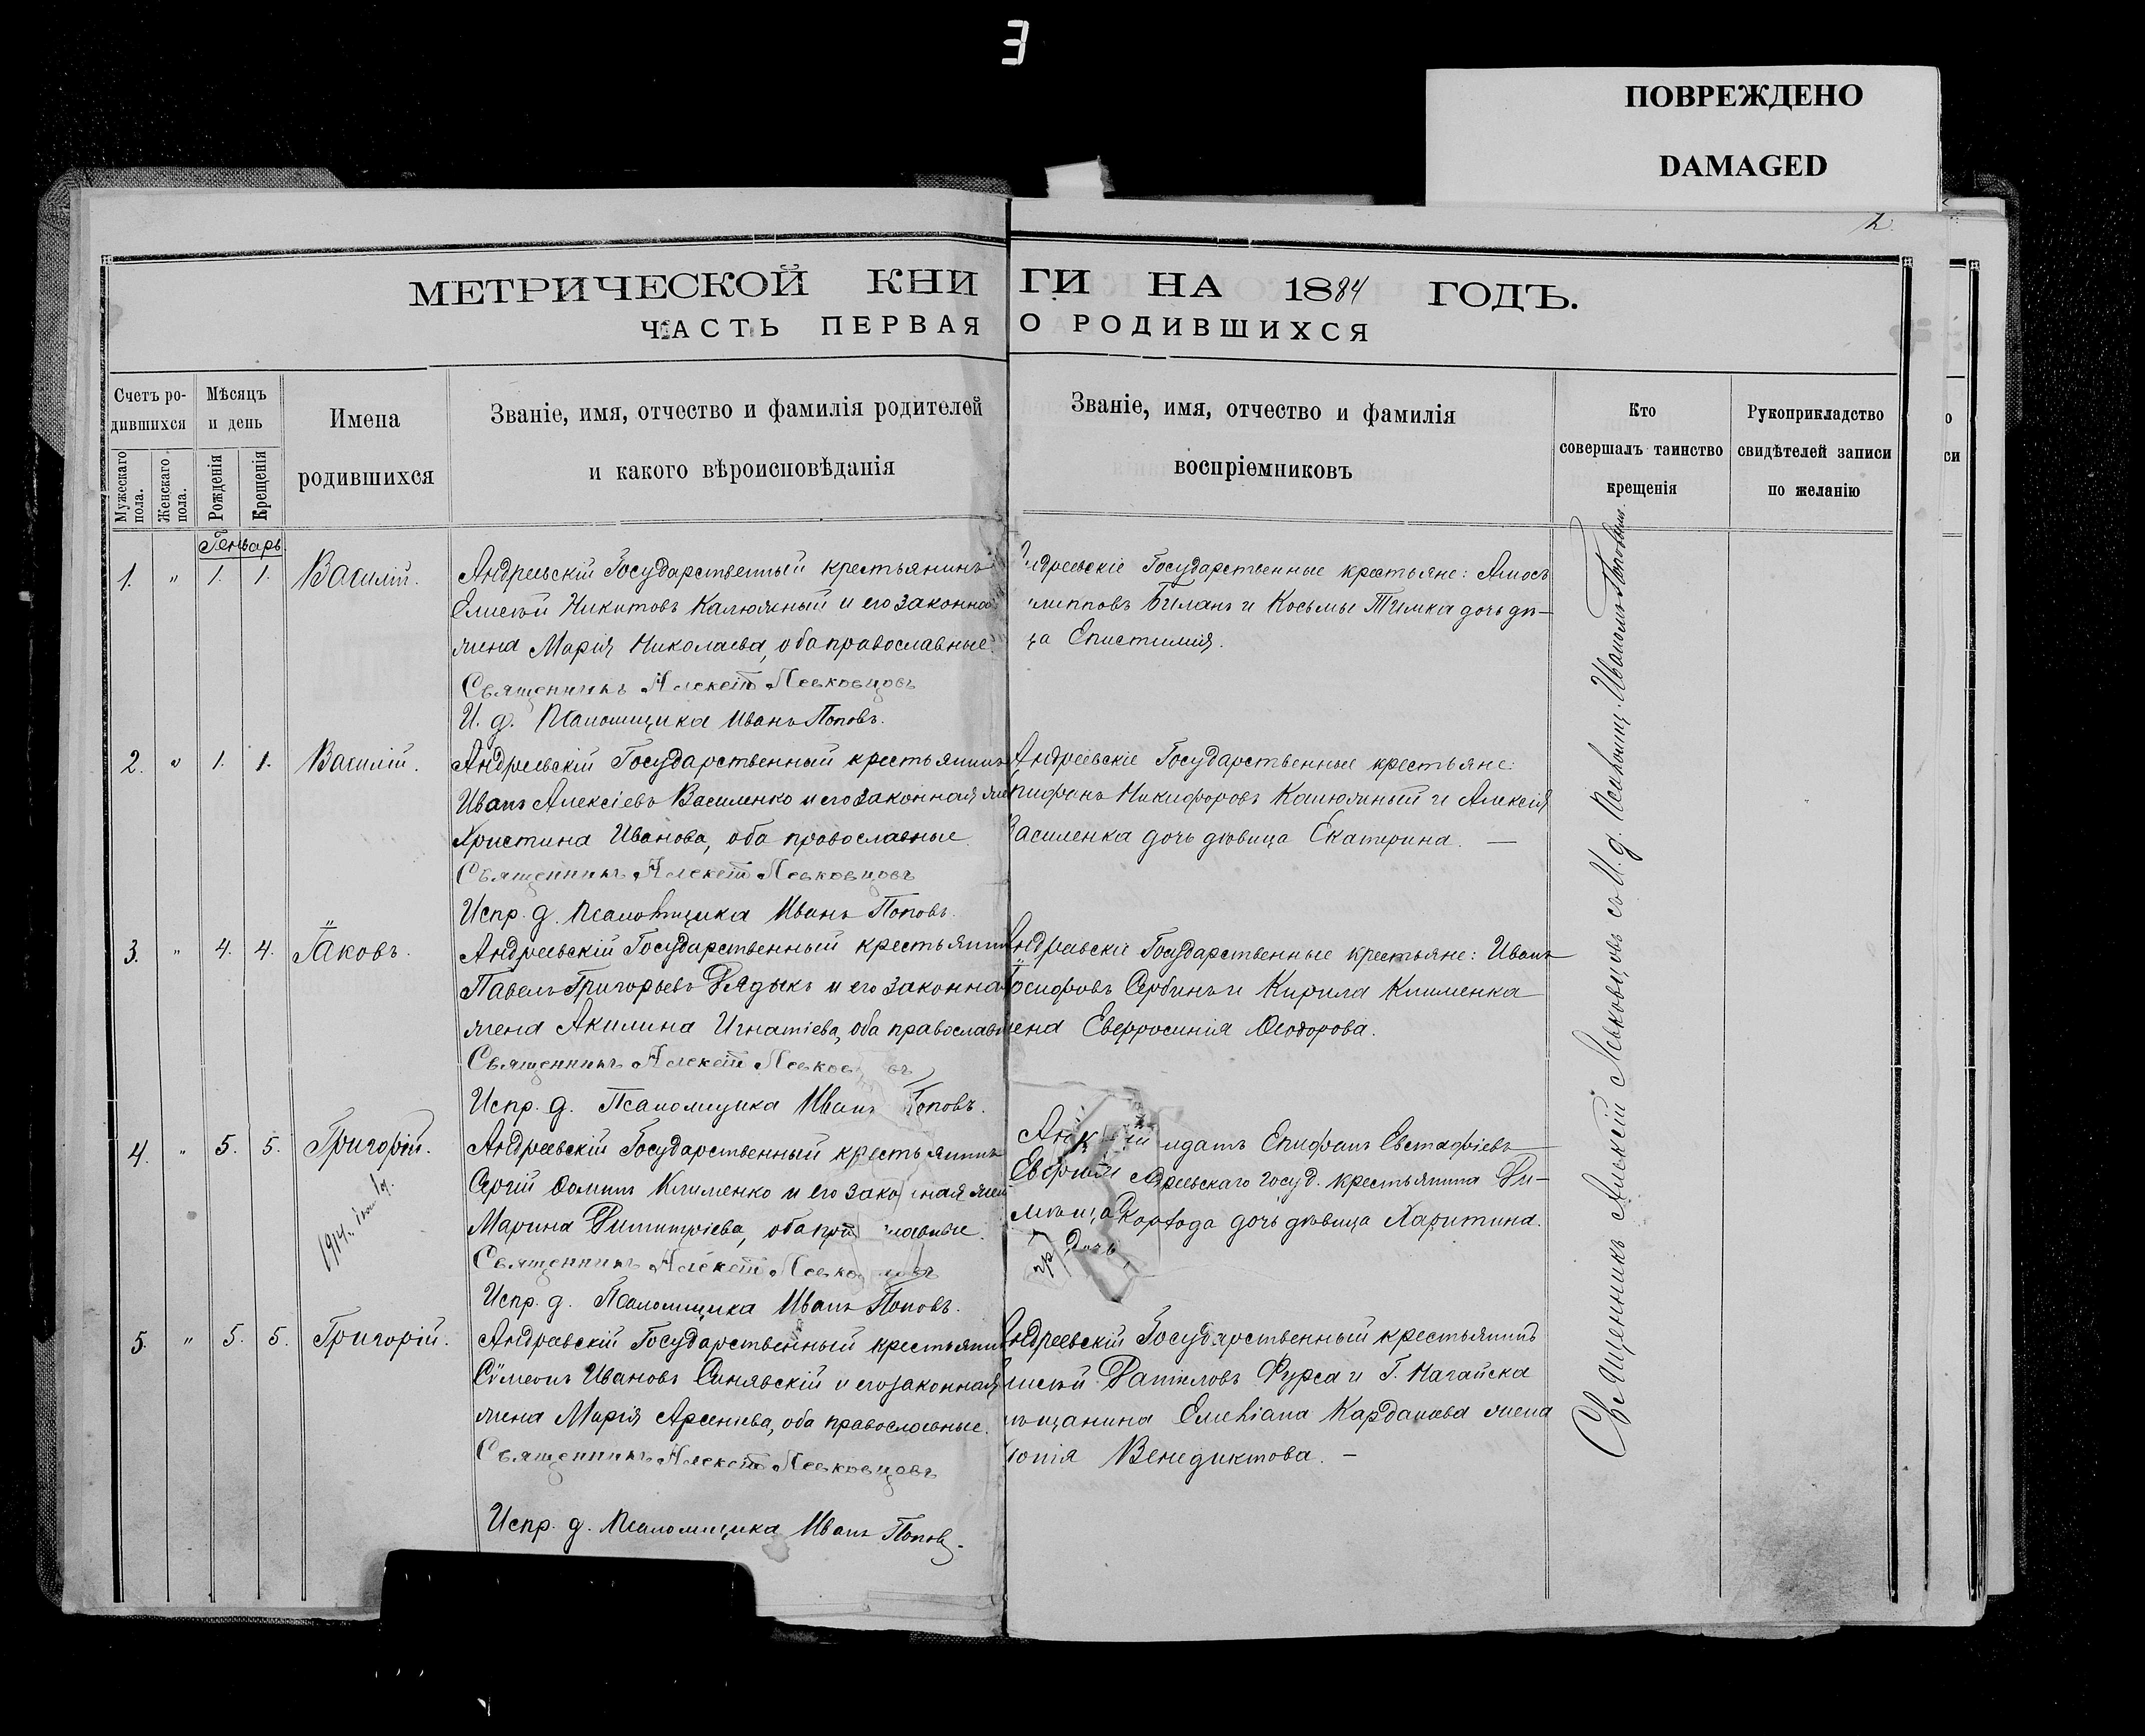 ПОВРЕЖДЕНО
DAMAGED
2
МЕТРИЧЕСКОЙ КНИГИ НА 1884 ГОДЪ.
ЧАСТЬ ПЕРВАЯ О РОДИВШИХСЯ
Счетъ ро-
дившихся
Мужескаго пола.
Женскаго пола.
Мѣсяцъ
и день
Рожденія
Крещенія
Имена
родившихся
Званіе, имя, отчество и фамилія родителей
и какого вѣроисповѣданія
Званіе, имя, отчество и фамилія
воспріемниковъ
Кто
совершалъ таинство
крещенія
Рукоприкладство
свидѣтелей записи
по желанію
Генварь
1. " 1. 1. Василій.
Андреевскій Государственный крестьянинъ
Елисей Никитовъ Калюжный и его законна
жена Марія Николаева, оба православные.
Священникъ Алексій Левковцовъ
И. д. Псаломщика Иванъ Поповъ.
дреевскіе Государственные крестьяне: Амосъ
липповъ Биланъ и Косьмы Тимка дочь дѣ-
ца Епистимія.
2. " 1. 1. Василій.
Андреевскій Государственный крестьянинъ
Иванъ Алексіевъ Василенко и его законная же
Христина Иванова, оба православные.
Священникъ Алексій Левковцовъ
Испр. д. Псаломщика Иванъ Поповъ.
Андреевскіе Государственные крестьяне:
пифанъ Никифоровъ Калюжный и Алексія
Василенка дочь дѣвица Екатерина. —
3. " 4. 4. Іаковъ.
Андреевскій Государственный крестьянин
Павелъ Григорьевъ Дядыкъ и его законна
жена Акилина Игнатіева, оба православн
Священникъ Алексій Левков въ
Испр. д. Псаломщика Иванъ Поповъ.
Андреевскіе Государственные крестьяне: Иванъ
Іосифовъ Сербинъ и Кирила Клименка
жена Евфросинія Ѳеодорова.
4. " 5. 5. Григорій.
Андреевскій Государственный крестьянинъ
Сергій Ѳомичъ Клименко и его зако нная жен
Марина Димитріева, оба пра славные.
Священникъ Алексій Левко цовъ
Испр. д. Псаломщика Иванъ Поповъ.
лдатъ Епифанъ Евстафіевъ
дреевскаго госуд. крестьянина Ди-
Корхода дочь дѣвица Харитина.
дочь
5. " 5. 5. Григорій.
Андреевскій Государственный крестьянин
Сѵмеонъ Ивановъ Синявскій и его законная
жена Марія Арсеніева, оба православные.
Священникъ Алексій Левковцовъ
Испр. д. Псаломщика Иванъ Поповъ.
Андреевскій Государственный крестьянинъ
лисей Даниловъ Фурса и Г. Нагайска
мѣщанина Емеліана Кардакова жена
Венедиктова. —
Священникъ Алексій Левковцовъ съ И. д. Псаломщ. Иваномъ Поповымъ.
о
си